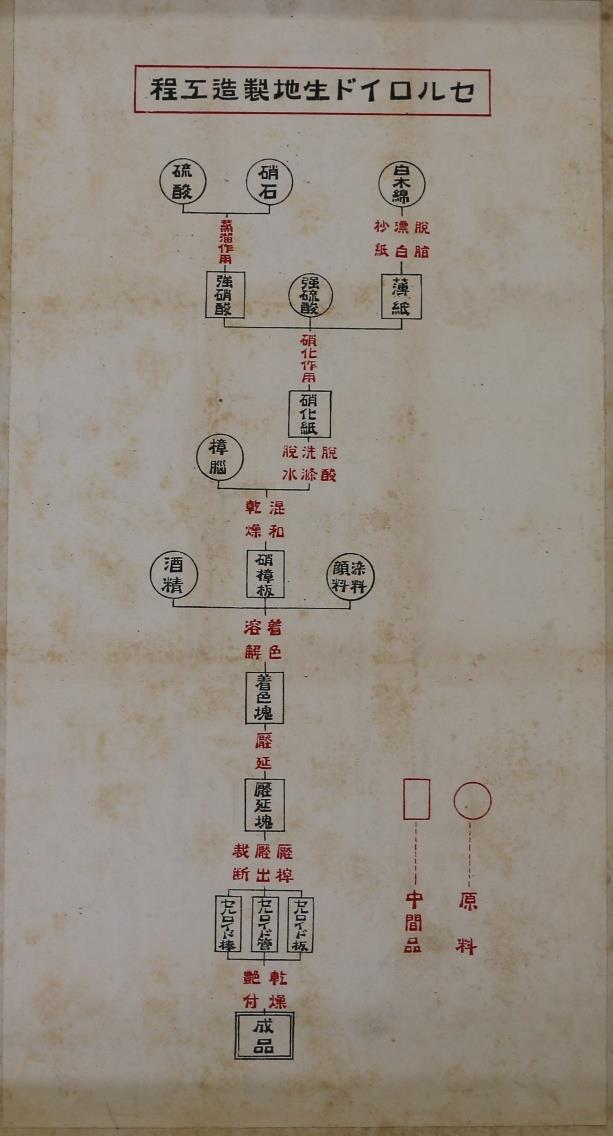 セルロイド生地製造工程
硫酸
硝石
白木綿
蒸溜作用
脱脂
漂白
抄紙
強硝酸
强硫酸
薄紙
硝化作用
硝化紙
樟腦
脱酸
洗滌
脱水
混和
乾燥
酒精
硝樟板
染料
顔料
着色
溶解
着色塊
壓延
壓延塊
壓搾
壓出
裁断
セルロイド棒
セルロイド管
セルロイド板
乾燥
艶付
成品
原料
中間品